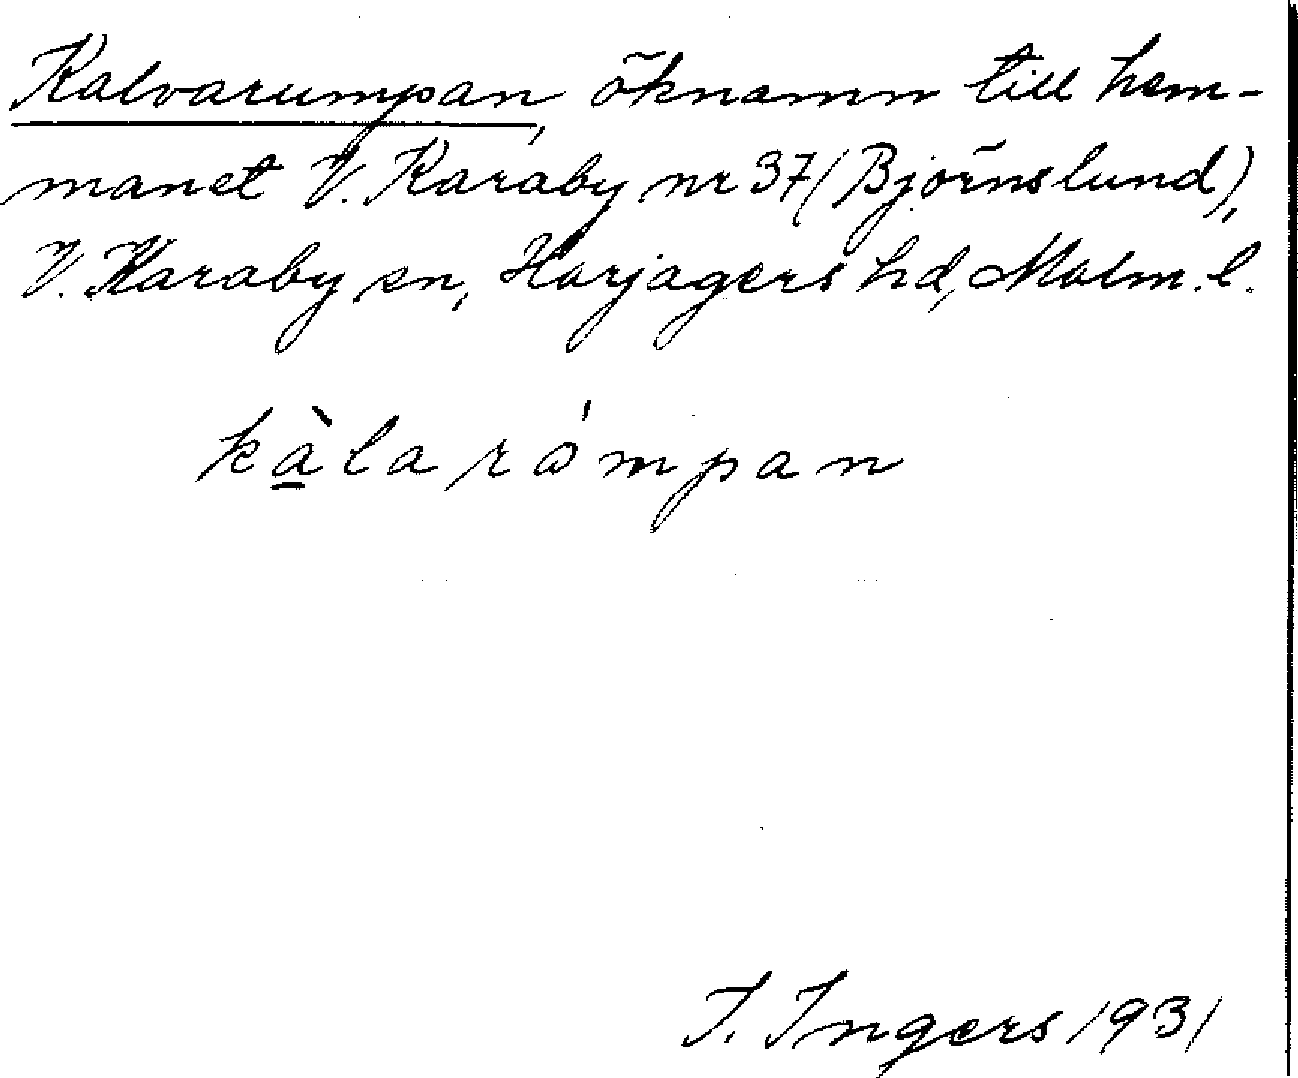 Kalvarumpan, öknamn till hem-
manet V. Karaby nr 37 (Björnslund),
V. Karaby sn, Harjagers hd, Malm. l.
kàlarómpan
I. Ingers 1931